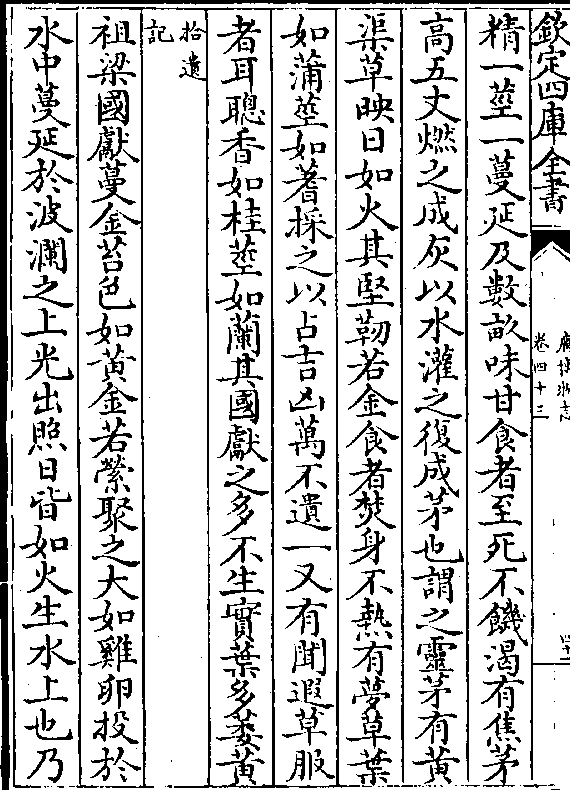 欽定四庫全書
廣博物志
卷四十三
四十二
精一莖一蔓延及數畝味甘食者至死不饑渴有焦茅
高五丈燃之成灰以水灌之復成茅也謂之靈茅有黃
渠草映日如火其堅韌若金食者焚身不熱有夢草葉
如蒲莖如蓍採之以占吉凶萬不遺一又有聞遐草服
者耳聰香如桂莖如蘭其國獻之多不生實葉多萎黃
拾遺
記
祖梁國獻蔓金苔色如黃金若縈聚之大如雞卵投於
水中蔓延於波瀾之上光出照日皆如火生水上也乃